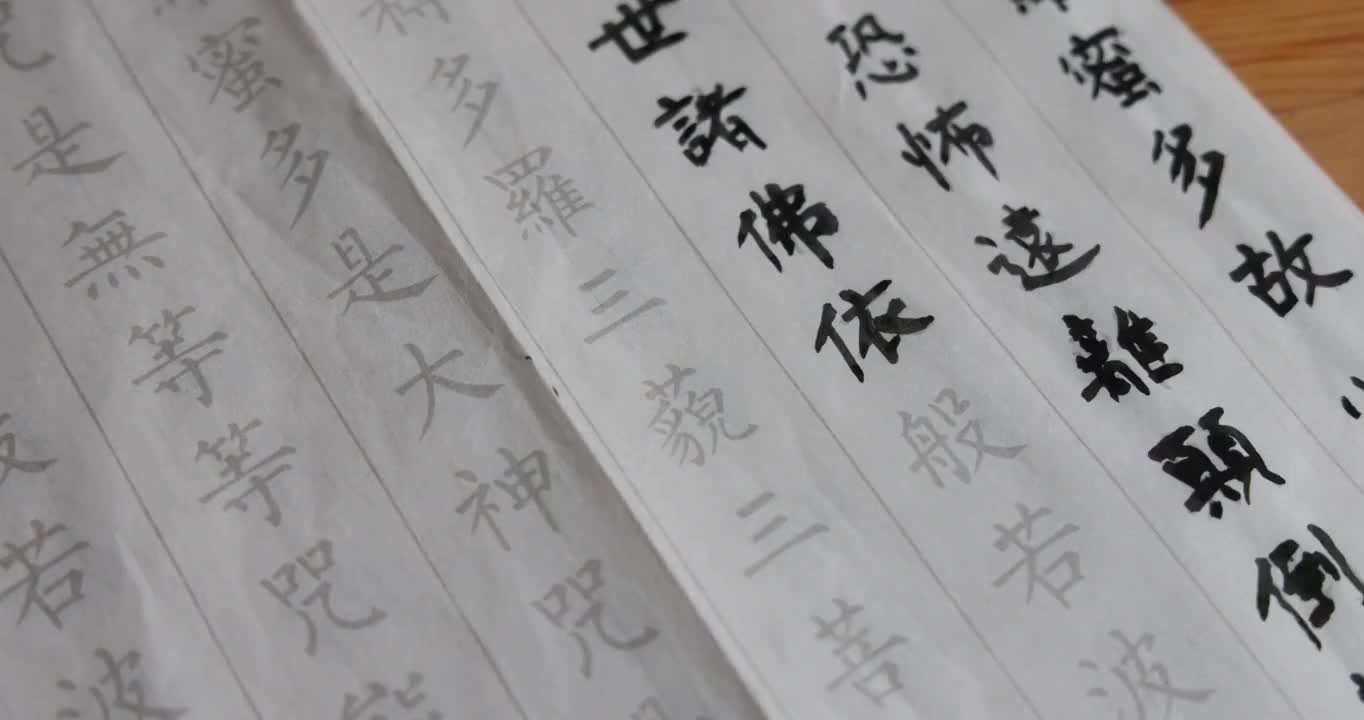 蜜多故
恐怖遠離顛倒
世諸佛依般若波
多羅三藐三菩
蜜多是大神咒
咒是無等等咒能
若波